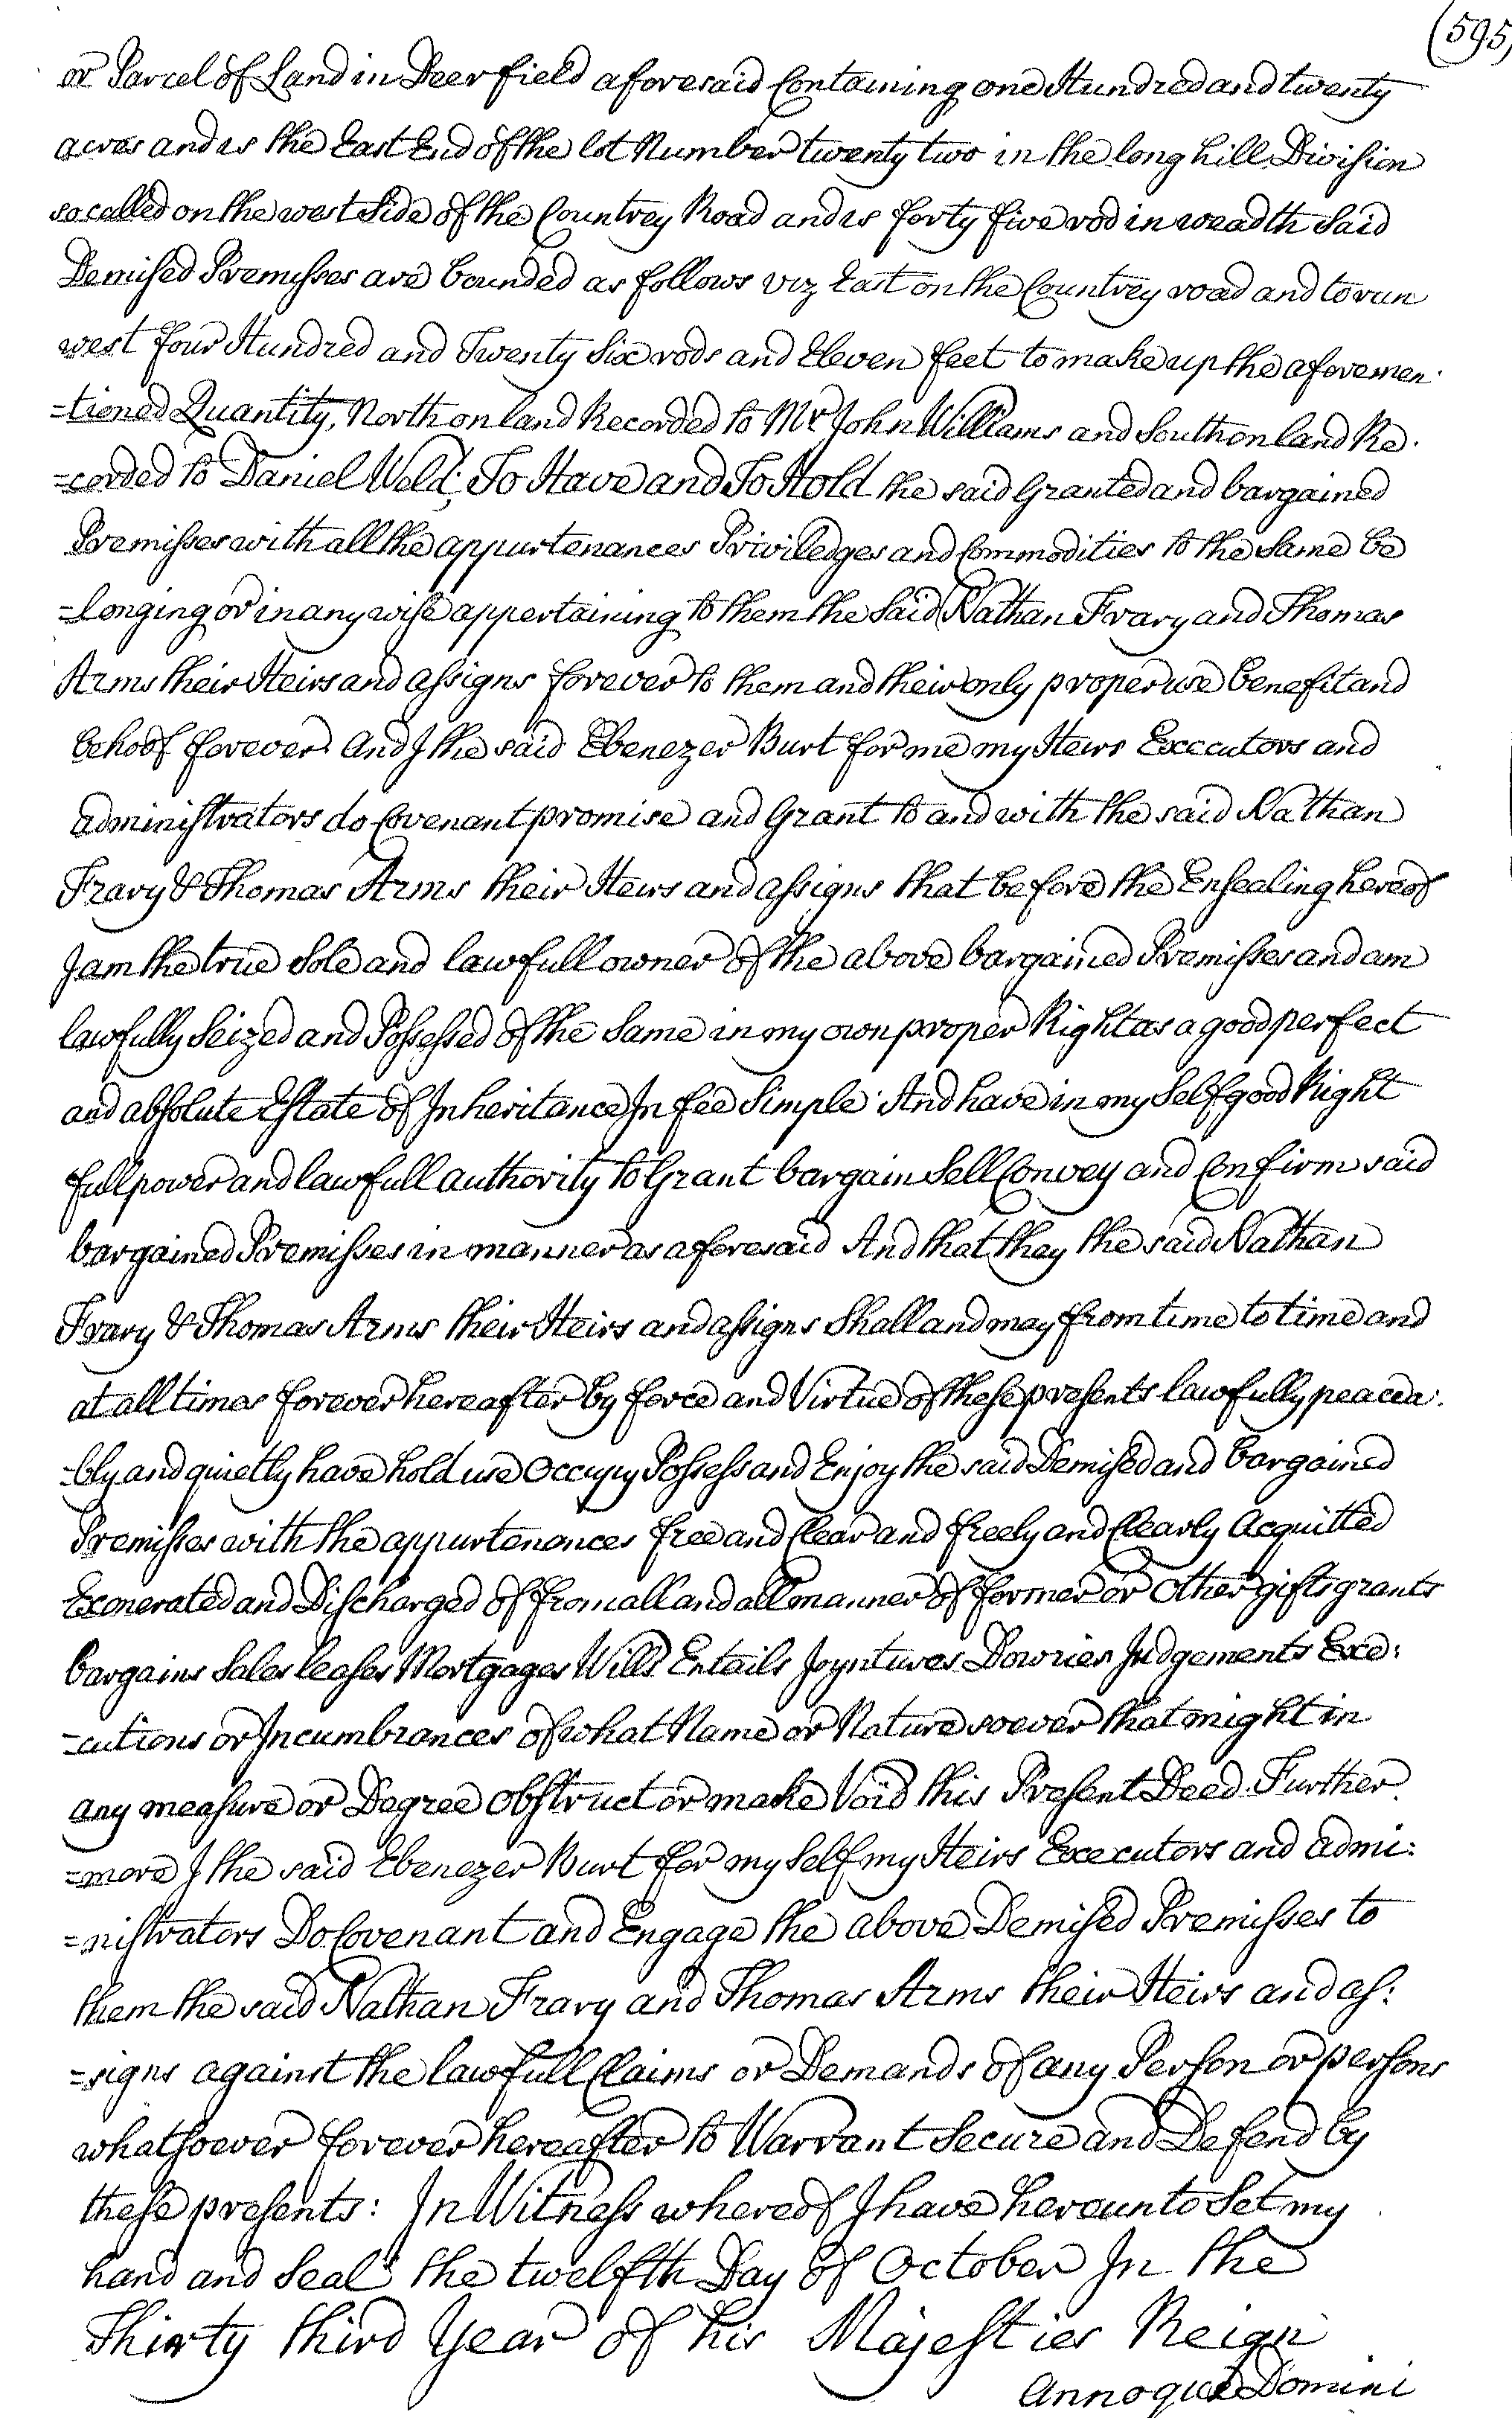 (595)
or Parcel of Land in Deerfield aforesaid Containing one Hundred and twenty
acres and is the East End of the lot Number twenty two in the long hill Division
so called on the west Side of the Countrey Road and is forty five rod in weadth Said
Demised Premisses are bounded as follows viz East on the Countrey road and to run
west four Hundred and Twenty Six rods and Eleven feet to make up the aforemen-
=tioned Quantity, North on land Recorded to Mr John Williams and South on land Re-
=corded to Daniel Weld; To Have and To Hold the said Granted and bargained
Premisses with all the appurtenances Priviledges and Commodities to the Same be
=longing or in any wise appertaining to them the Said Nathan Frary and Thomas
Arms their Heirs and assigns forever to them and their only proper use benefit and
behoof forever. And I the said Ebenezer Burt for me my Heirs Executors and
administrators do Covenant promise and Grant to and with the said Nathan
Frary & Thomas Arms their Heirs and assigns that before the Ensealing hereof
I am the true Sole and lawfull owner of the above bargained Premisses and am
lawfully Seized and Possessed of the Same in my own proper Right as a good perfect
and absolute Estate of Inheritance In fee Simple And have in my Self good Right
full power and lawfull authority to Grant bargain Sell Convey and Confirm said
bargained Premisses in manner as aforesaid And that they the said Nathan
Frary & Thomas Arms their Heirs and assigns Shall and may from time to time and
at all times forever hereafter by force and Virtue of these presents lawfully peacea:
=bly and quietly have hold use Occupy Possess and Enjoy the said Demised and bargained
Premisses with the appurtenances free and Clear and freely and Clearly Acquitted
Exonerated and Discharged of from all and all manner of former or other gifts grants
bargains Sales leases Mortgages Wills Entails Joyntures Dowries Judgements Exe:
=cutions or Incumbrances of what Name or Nature soever that might in
any measure or Degree obstruct or make Void this Present Deed. Further
=more I the said Ebenezer Burt for my Self my Heirs Executors and admi:
=nistrators Do Covenant and Engage the above Demised Premisses to
them the said Nathan Frary and Thomas Arms their Heirs and as:
=signs against the lawfull Claims or Demands of any Person or persons
whatsoever forever hereafter to Warrant Secure and Defend by
these presents: In Witness whereof I have hereunto Set my
hand and Seal the twelfth Day of October In the
Thirty third Year of his Majesties Reign
Annoque Domini